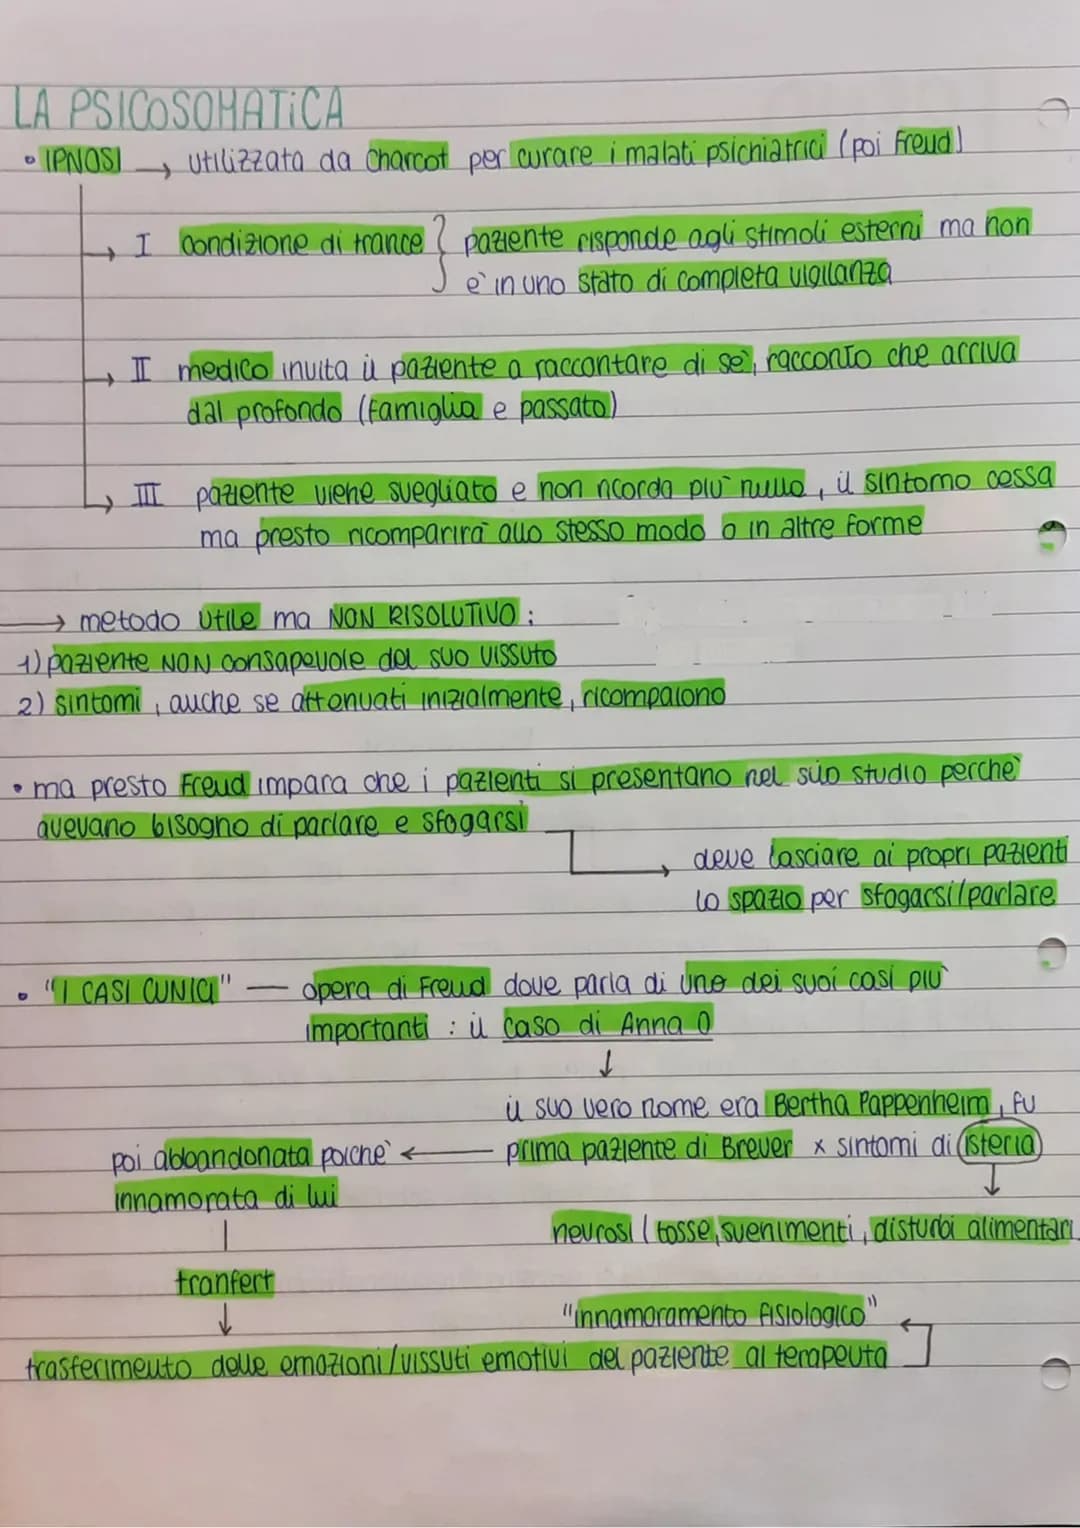 LA PSICOSOMATICA
• IPNOSI → utilizzata da Charcot per curare i malati psichiatrici (poi Freud)
→ I condizione di trance } paziente risponde agli stimoli esterni ma non
è in uno stato di completa vigilanza
→ II medico invita il paziente a raccontare di sè, racconto che arriva
dal profondo (famiglia e passato)
→ III paziente viene svegliato e non ricorda più nulla, il sintomo cessa
ma presto ricomparirà allo stesso modo o in altre forme
→ metodo utile ma NON RISOLUTIVO:
1) paziente NON consapevole del suo vissuto
2) sintomi, anche se attenuati inizialmente, ricompaiono
• ma presto Freud impara che i pazienti si presentano nel suo studio perchè
avevano bisogno di parlare e sfogarsi
→ deve lasciare ai propri pazienti
lo spazio per sfogarsi/parlare
• "I CASI CLINICI" — opera di Freud dove parla di uno dei suoi casi più
importanti: il caso di Anna O
↓
il suo vero nome era Bertha Pappenheim, fu
poi abbandonata poichè ← prima paziente di Breuer x sintomi di isteria
innamorata di lui
↓
nevrosi (tosse, svenimenti, disturbi alimentari
tranfert
↓
"innamoramento fisiologico"
trasferimento delle emozioni/vissuti emotivi del paziente al terapeuta